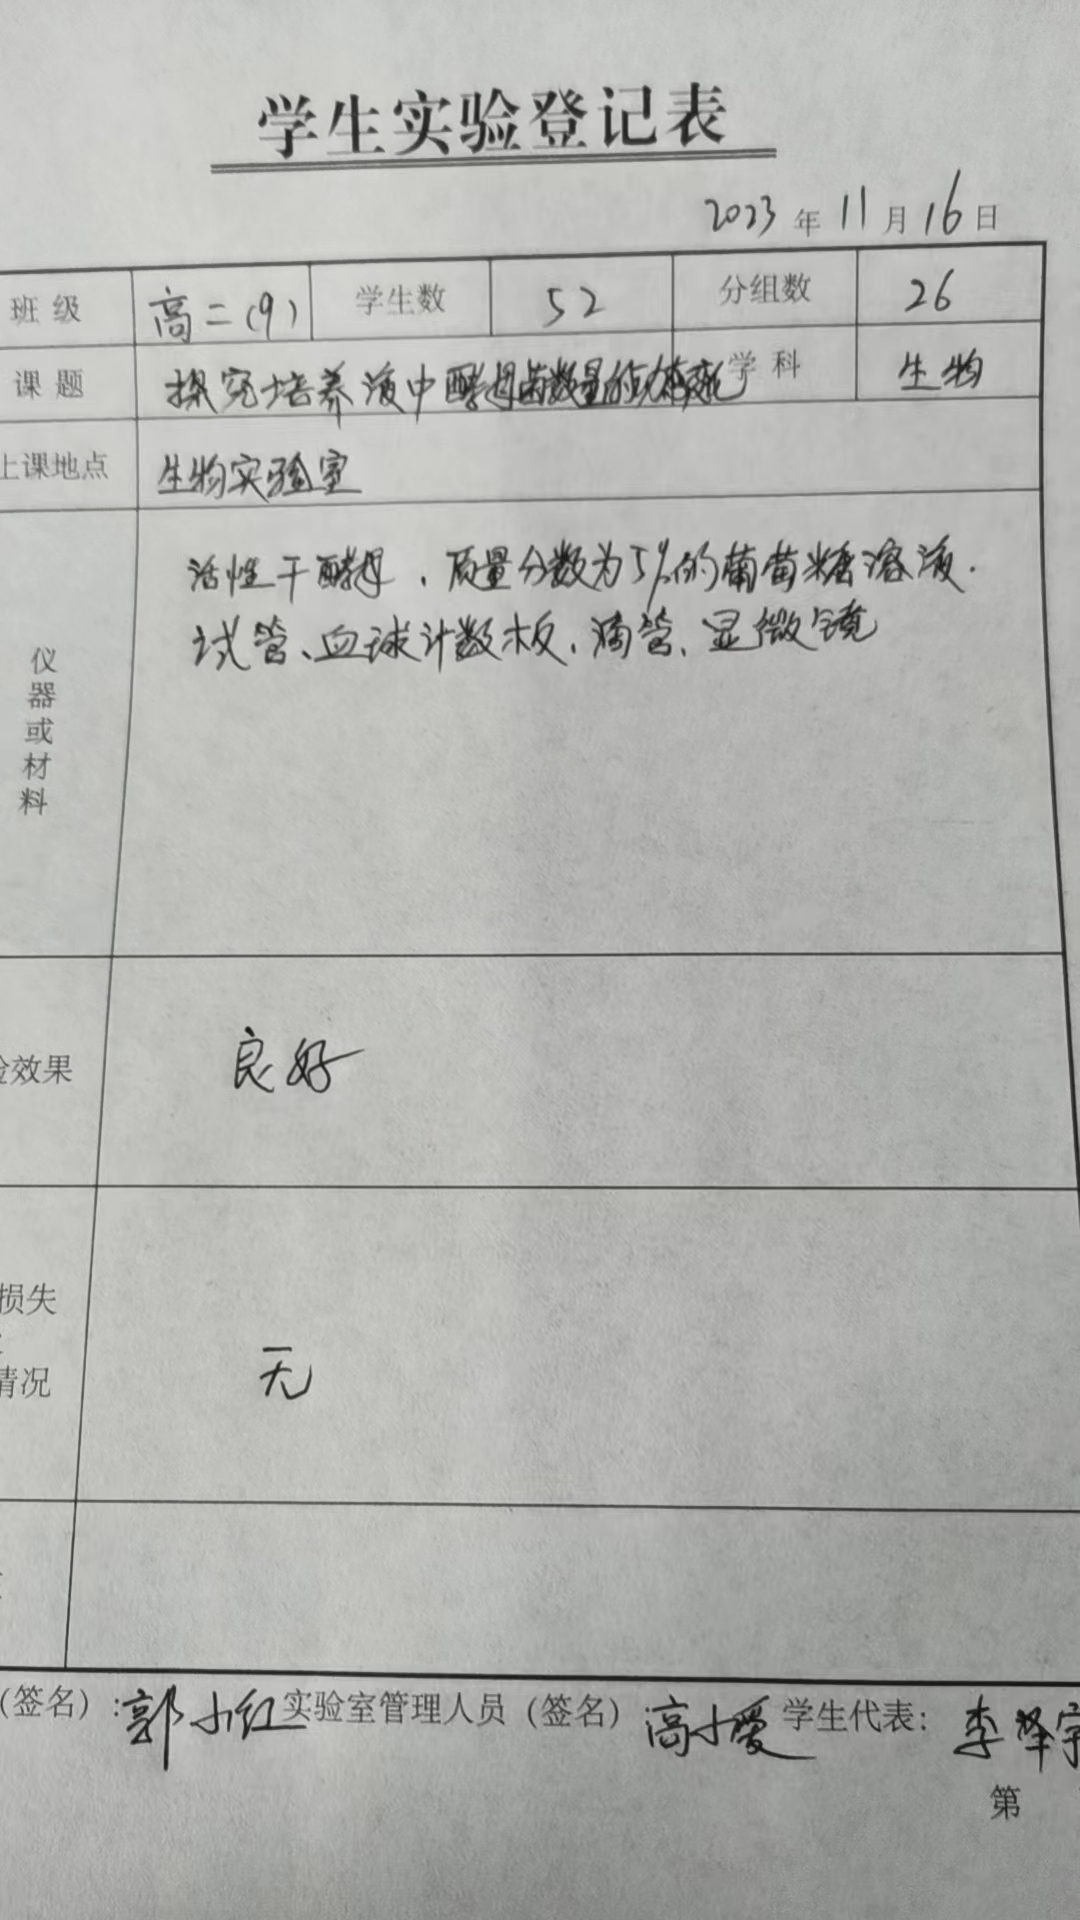 学生实验登记表
2023 年 11 月 16 日
班 级 高二(9) 学生数 52 分组数 26
课 题 探究培养液中酵母菌数量的动态变化 学 科 生物
上课地点 生物实验室
仪器或材料
活性干酵母、质量分数为5%的葡萄糖溶液、
试管、血球计数板、滴管、显微镜
验效果 良好
损失
情况
无
(签名):郭小红 实验室管理人员(签名) 高小爱 学生代表: 李泽宇
第